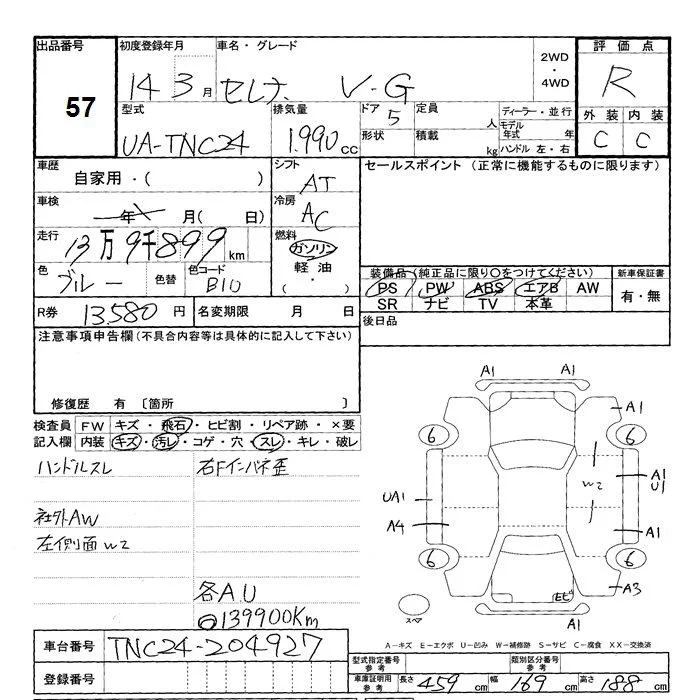 出品番号
57
初度登録年月
14 3月
車名・グレード
セレナ V-G
2WD
・
4WD
評価点
R
外装 内装
C C
型式
UA-TNC24
排気量
1.990cc
ドア
5
定員
人
形状
積載
kg
ディーラー・並行
モデル年式 年
ハンドル 左・右
車歴
自家用・( )
シフト
AT
セールスポイント (正常に機能するものに限ります)
車検
年 月( 日)
冷房
AC
走行
13万9千899km
燃料
ガソリン
軽油
( ・ )
色
ブルー
色替
色コード
B10
装備品(純正品に限り○をつけてください)
PS PW ABS エアB AW
SR ナビ TV 本革
新車保証書
有・無
R券
13,580円
名変期限 月 日
後日品
注意事項申告欄(不具合内容等は具体的に記入して下さい)
修復歴 有 〔箇所 〕
検査員記入欄
FW キズ・飛石・ヒビ割・リペア跡・×要
内装 キズ・汚レ・コゲ・穴・スレ・キレ・破レ
ハンドルスレ
右Fインパネ歪
社外AW
左側面W2
各A.U
139900Km
車台番号
TNC24-204927
登録番号
A1
A1
6
6
W2
A1
U1
UA1
A4
A1
6
6
A3
スペア
A1
A-キズ E-エクボ U-凹み W-補修跡 S-サビ C-腐食 XX-交換済
型式指定番号
参考
類別区分番号
参考
車庫証明用
参考
長さ 459cm
幅 169cm
高さ 188cm